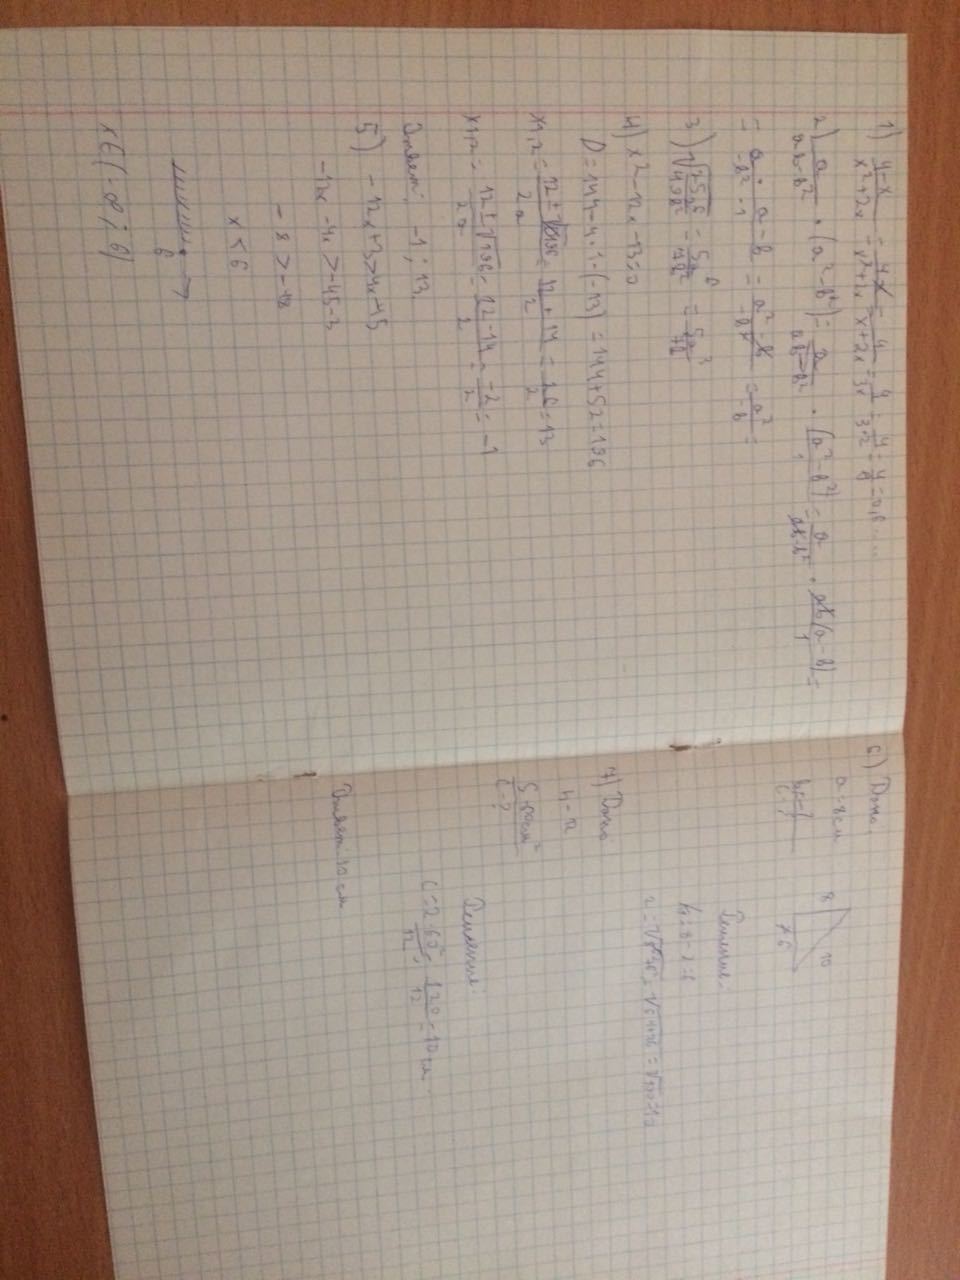 1) (4-x)/(x²+2x) = (4-x)/(x²+2x) = 4/(x+2x) = 4/3x = 4/(3·2) = 4/6 = 0,6...
2) a/(ab-b²) · (a²-b²) = a/(ab-b²) · (a²-b²)/1 = a/(ab-b²) · ab(a-b)/1 =
= a/(-b²) · (a-b)/1 =
3)
4) x²-12x-13=0
D=144-4·1·(-13)=144+52=196
x1,2 = (12±√196)/2a = (12+14)/2 = 26/2 = 13
x1,2 = (12±√196)/2a = (12-14)/2 = -2/2 = -1
Ответ: -1; 13.
5) -12x+3>4x-45
-12x-4x>-45-3
x<6
6
x∈(-∞; 6)
6) Дано
a=8см
c-?
8
10
x 6
Решение:
7) Дано
S=60см²
c-?
Решение:
c=2·60²/12 = 120/12 = 10 см.
Ответ: 10 см